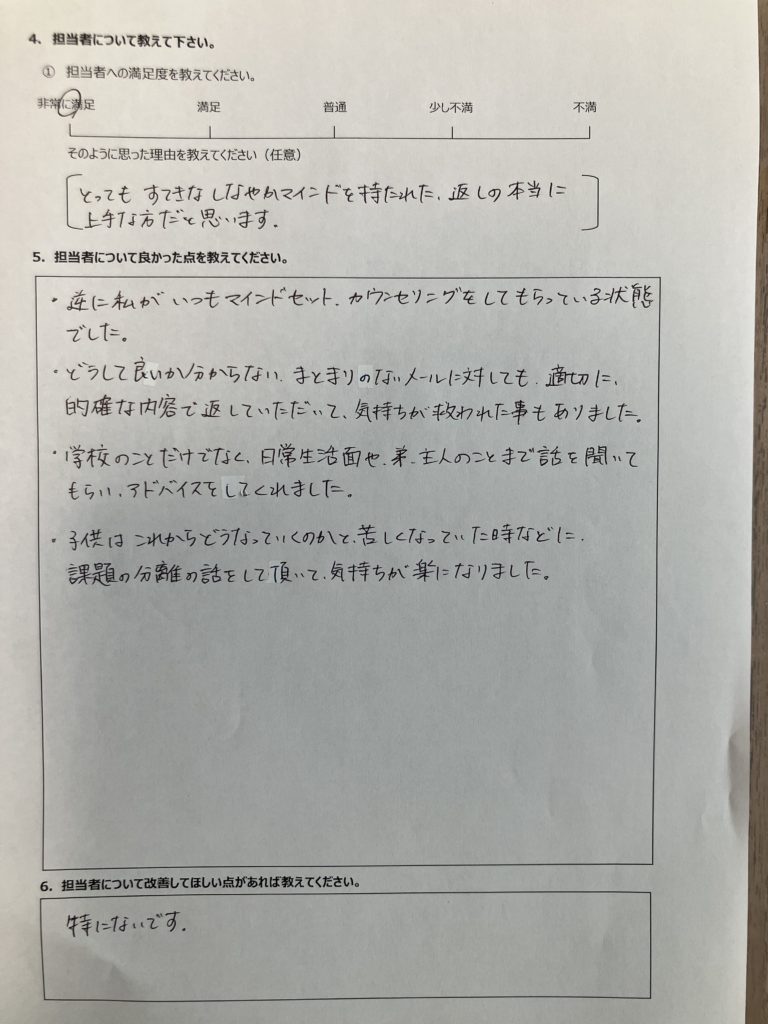 4、担当者について教えて下さい。
① 担当者への満足度を教えてください。
非常に満足 満足 普通 少し不満 不満
そのように思った理由を教えてください（任意）
とっても すてきな しなやかマインドを持たれた、返しの本当に
上手な方だと思います。
5．担当者について良かった点を教えてください。
・逆に私が いつもマインドセット、カウンセリングをしてもらっている状態
でした。
・どうして良いか分からない、まとまりのないメールに対しても、適切に、
的確な内容で返していただいて、気持ちが救われた事もありました。
・学校のことだけでなく、日常生活面や、弟、主人のことまで話を聞いて
もらい、アドバイスをしてくれました。
・子供は これからどうなっていくのかと、苦しくなっていた時などに、
課題の分離の話をして頂いて、気持ちが楽になりました。
6．担当者について改善してほしい点があれば教えてください。
特にないです。